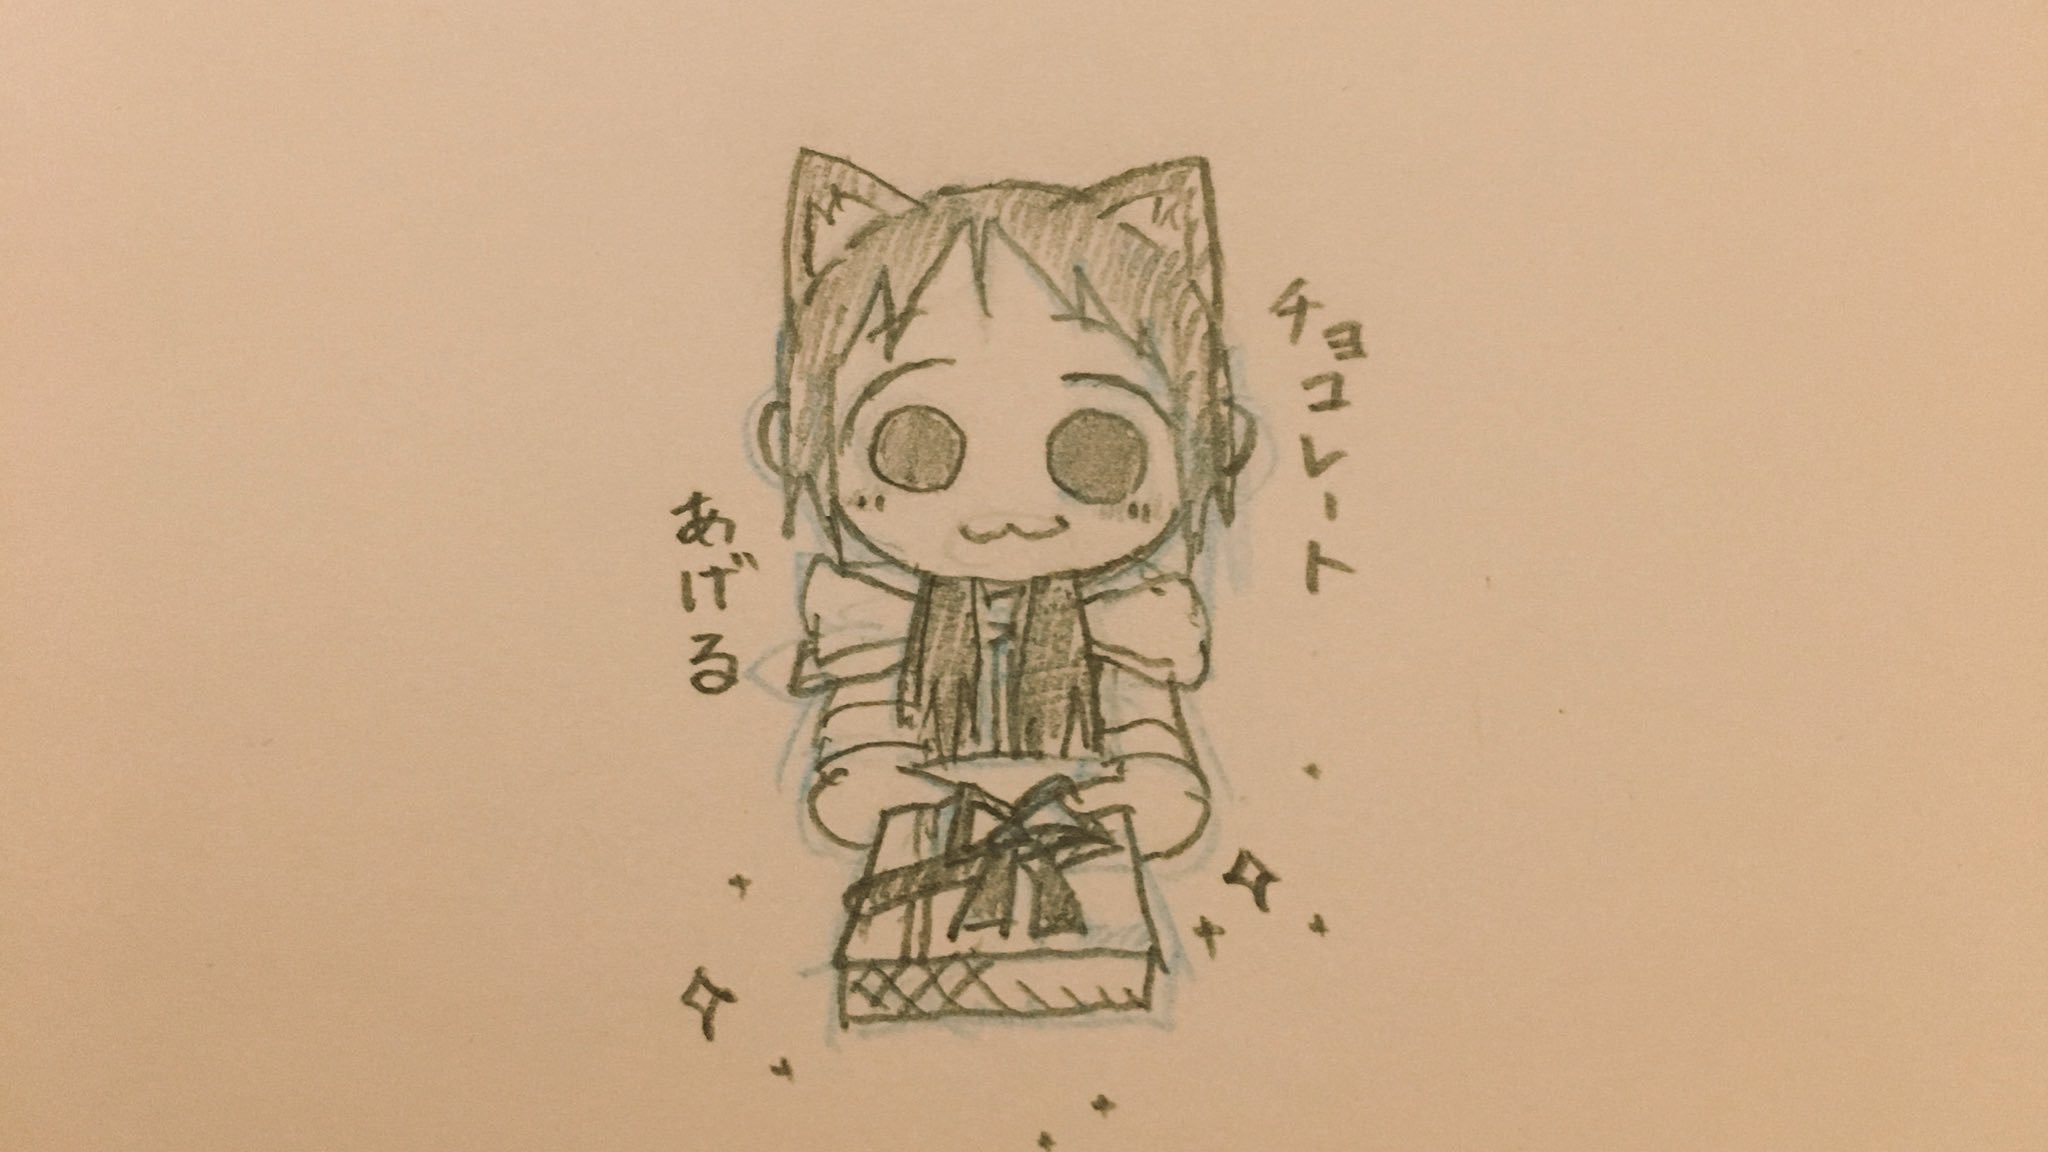 チョコレート
あげる